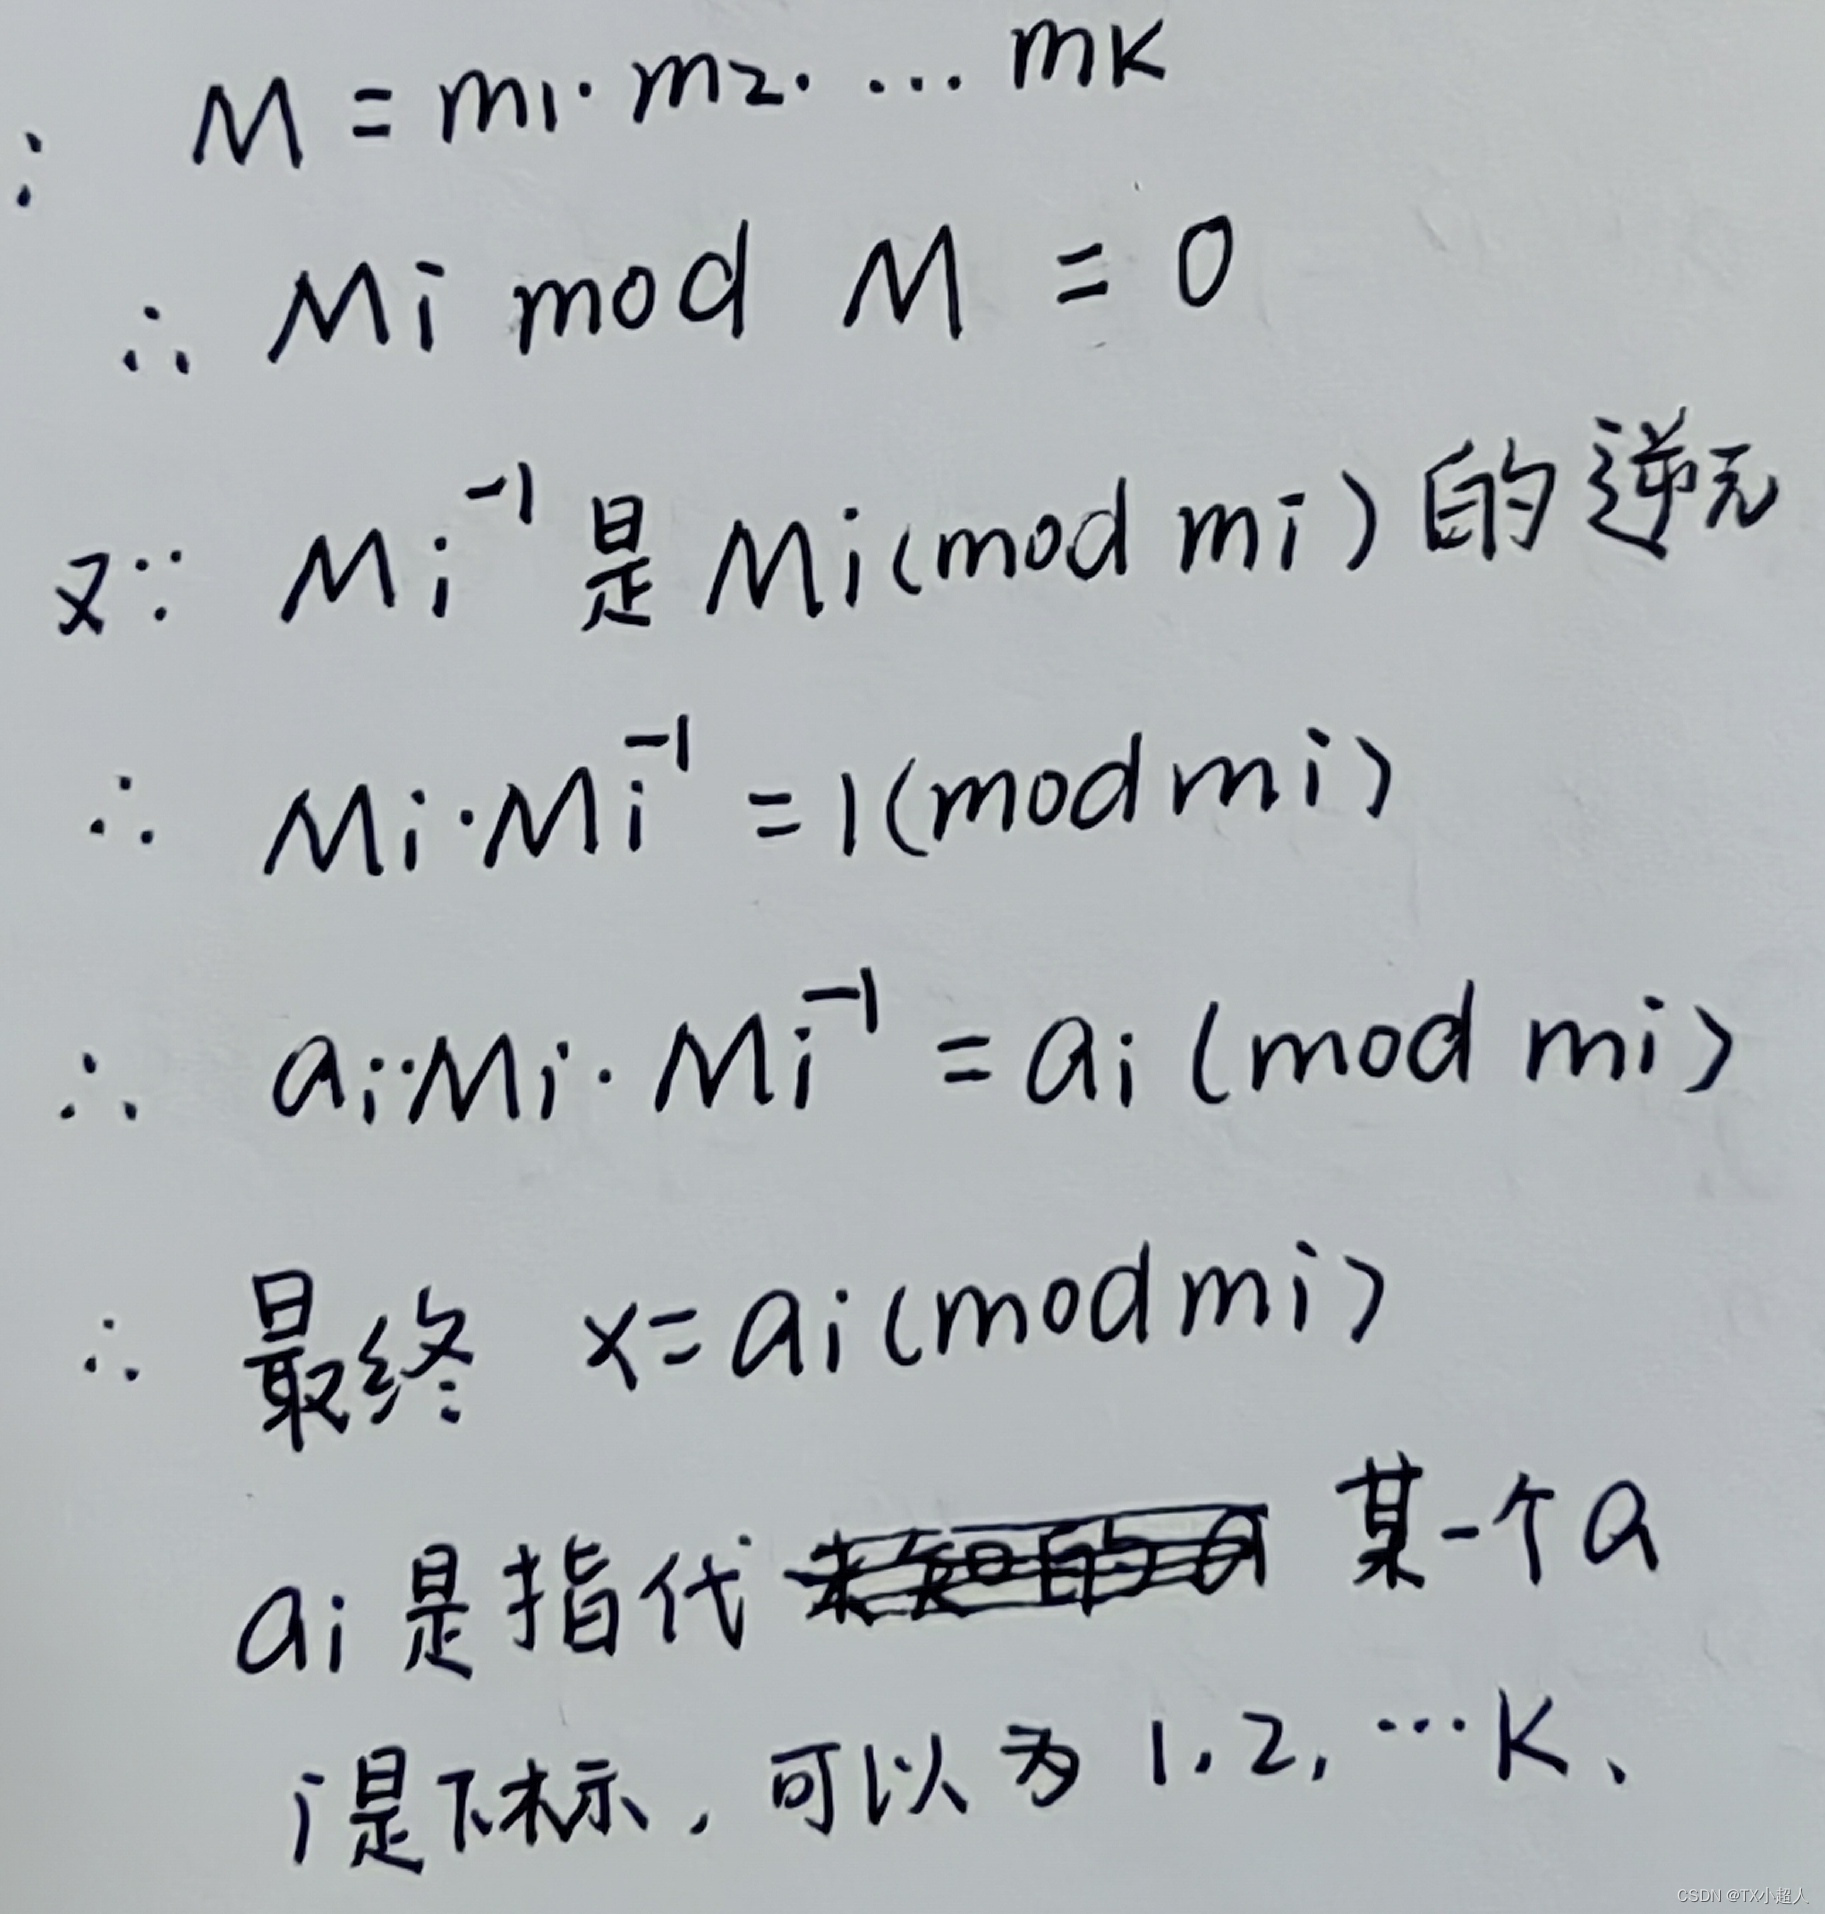 ∵ M = m1 · m2 · ... mk
∴ Mi mod M = 0
又∵ Mi⁻¹ 是 Mi(mod mi) 的逆元
∴ Mi·Mi⁻¹ = 1(mod mi)
∴ ai·Mi·Mi⁻¹ = ai (mod mi)
∴ 最终 x=ai(mod mi)
ai 是指代 某一个a
i是下标，可以为 1，2，…K、
CSDN @TX小超人